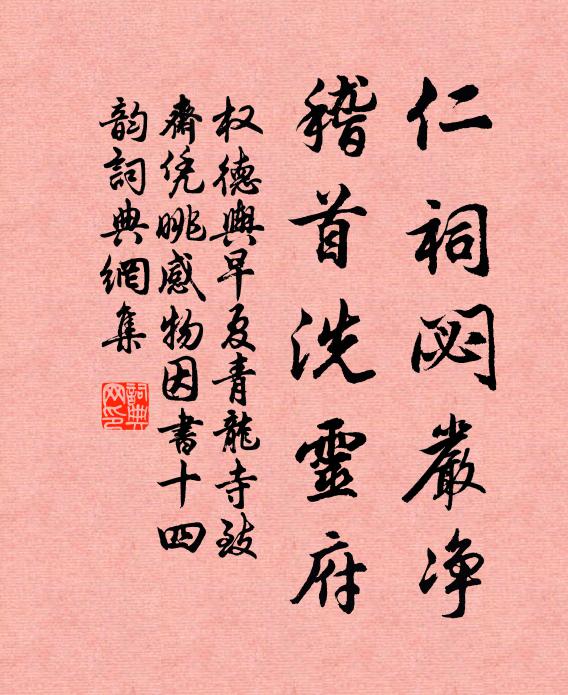 仁祠閟嚴净
稽首洗靈府
权德輿早夏青龍寺致
齋凭眺感物因書十四
韵詞典網集
詞典网印